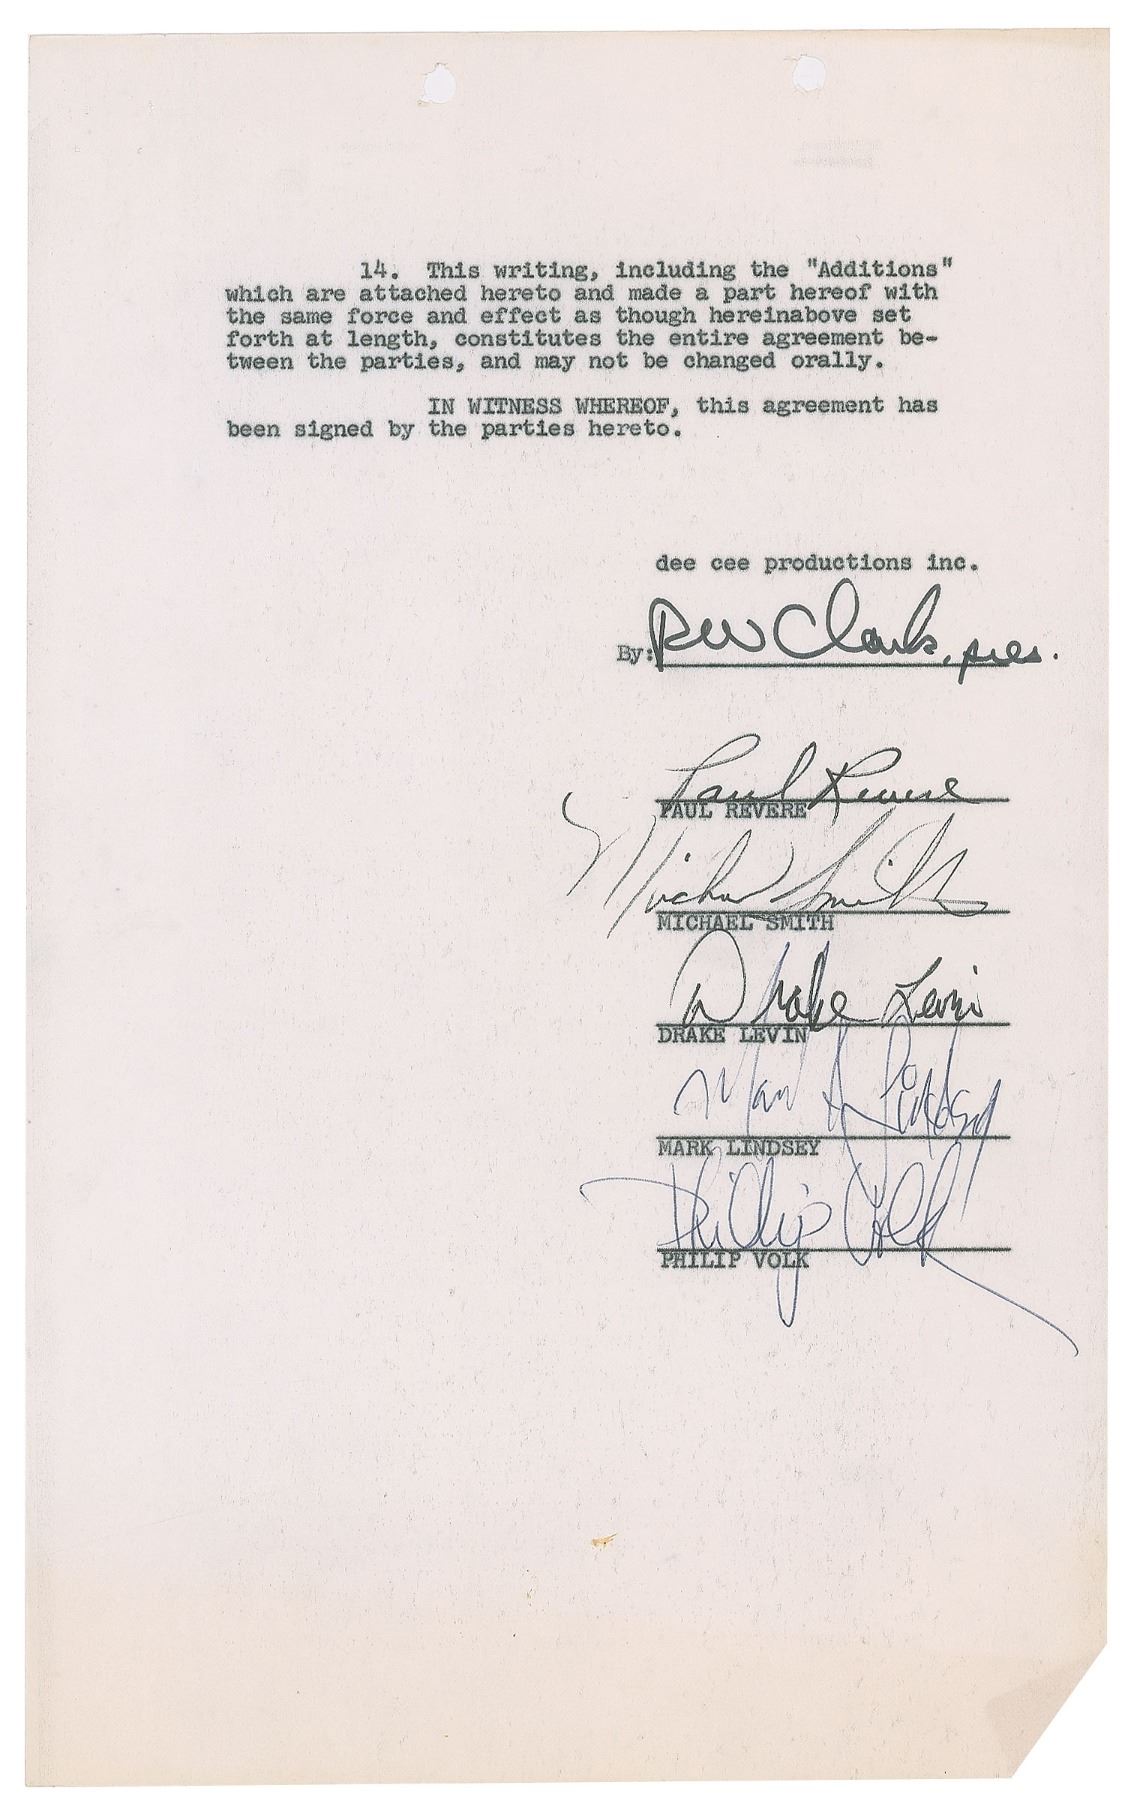 14. This writing, including the "Additions"
which are attached hereto and made a part hereof with
the same force and effect as though hereinabove set
forth at length, constitutes the entire agreement be-
tween the parties, and may not be changed orally.
IN WITNESS WHEREOF, this agreement has
been signed by the parties hereto.
dee cee productions inc.
By: RW Clark, pres.
Paul Revere
PAUL REVERE
Michael Smith
MICHAEL SMITH
Drake Levin
DRAKE LEVIN
Mark A Lindsay
MARK LINDSEY
Phillip Volk
PHILIP VOLK